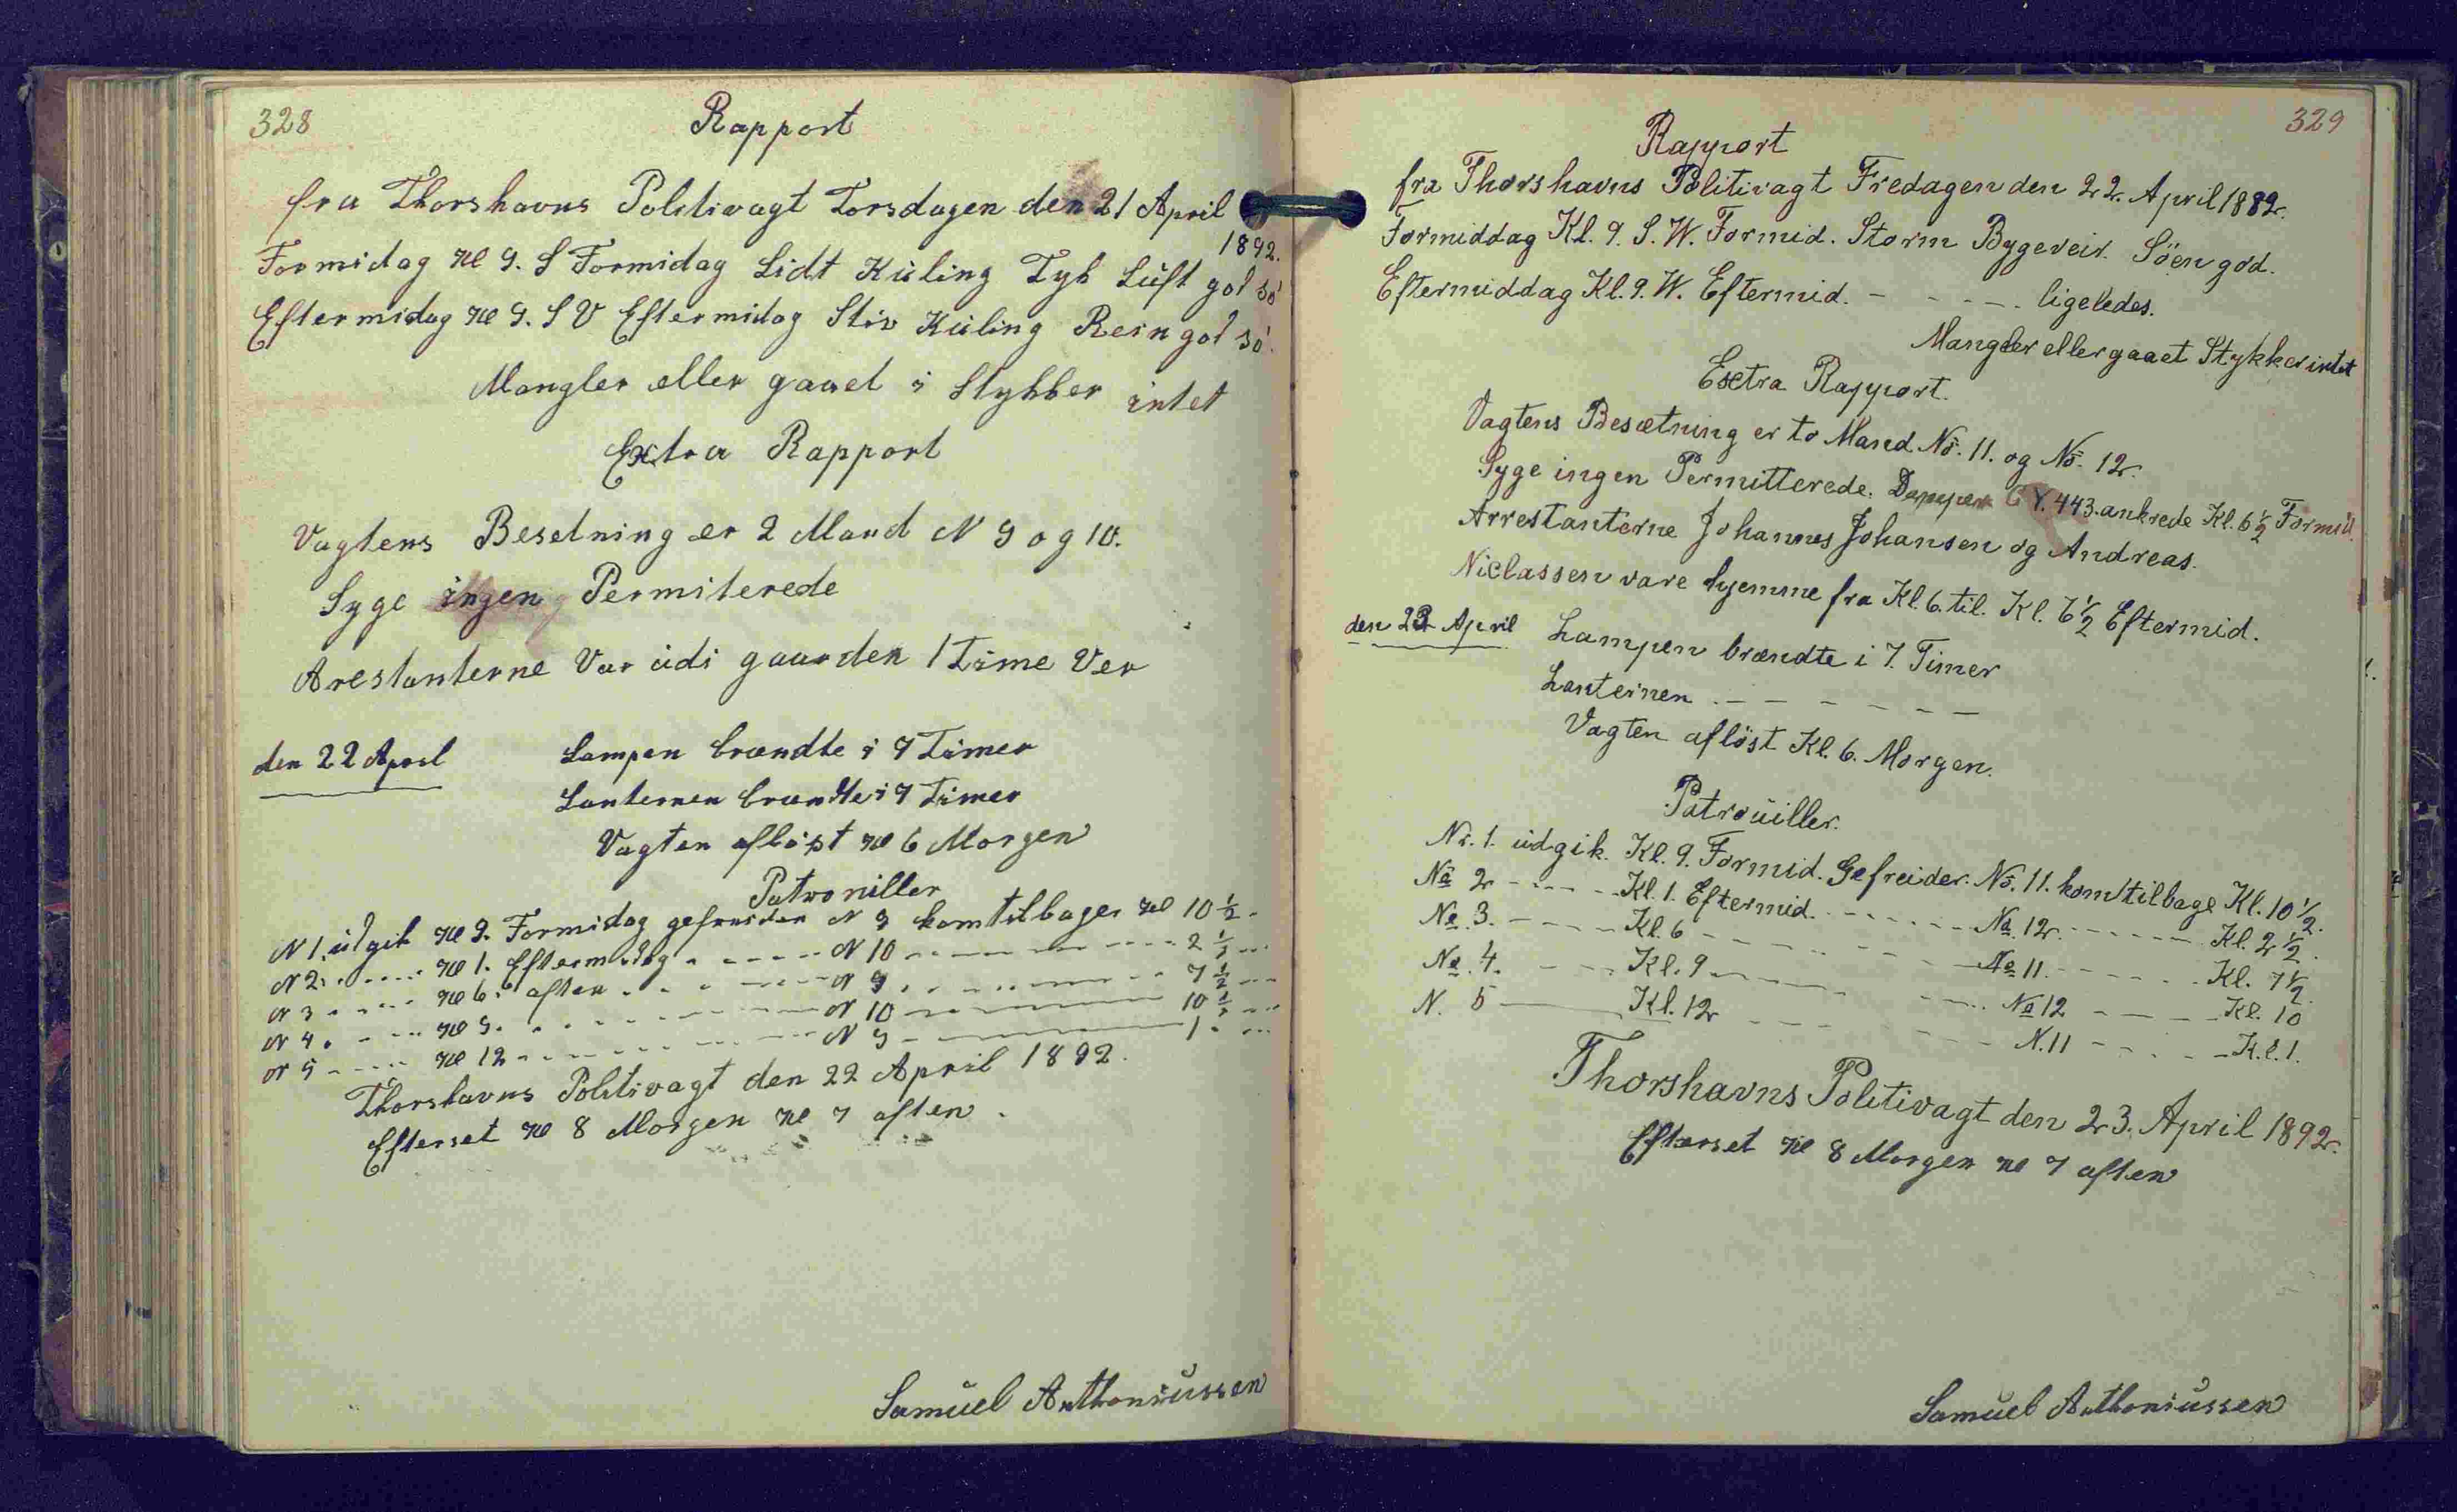 328
Rapport
fra Thorshavns Politivagt Torsdagen den 21 April
1892.
Formidag Kl 9. S Formidag Lidt Kuling Tyk Luft god sö
Eftermidag Kl 9. S V Eftermidag Stiv Kuling Rein god sö.
Mangler eller gaaet i Stykker intet
Extra Rapport
Vagtens Besetning er 2 Mand N 9 og 10.
Syge ingen Permiterede
Arestanterne Var udi gaarden 1 Time Ver
den 22 April Lampen brændte i 7 Timer
Lanternen brændte i 7 Timer
Vagten aflöst Kl 6 Morgen
Patroniller
N 1. udgik Kl 9. Formidag gefreider N 9 kom tilbage Kl 10 1/2.
N 2. Kl 1. Eftermidag N 10 2 1/2
N 3 Kl 6. aften N 9 7 1/2
N 4. Kl 9. N 10 10 1/2
N 5 Kl 12 N 9 1.
Thorshavns Politivagt den 22 April 1892.
Efterset Kl 8 Morgen Kl 7 aften.
Samuel Anthoniussen
329
Rapport
fra Thorshavns Politivagt Fredagen den 22. April 1882.
Formiddag Kl. 9. S. W. Formid. Storm Bygeveir. Söen god.
Eftermiddag Kl. 9. W. Eftermid. - - - - - ligeledes.
Mangler eller gaaet Stykker intet
Exctra Rapport.
Vagtens Besætning er to Mand No. 11. og No. 12.
Syge ingen Permitterede. 443. ankrede Kl. 6 1/2 Formid.
Arrestanterne Johannes Johansen og Andreas.
Niclassen vare hjemme fra Kl. 6. til. Kl. 6 1/2 Eftermid.
den 23 April Lampen brændte i 7. Timer
Lanteinen - - - - - - -
Vagten aflöst Kl. 6. Morgen.
Patrouiller.
Nr. 1. udgik. Kl. 9. Formid. Gefreider. No. 11. kom tilbage Kl. 10 1/2.
No 2 - - - - Kl. 1. Eftermid. - - - - No. 12. - - - - Kl. 2 1/2.
No. 3. - - - - Kl. 6 - - - - No 11. - - - - Kl. 7 1/2.
No. 4. - - - - Kl. 9 - - - - No 12 - - - - Kl. 10
N. 5 Kl. 12 - - - - N. 11 - - - - Kl. 1.
Thorshavns Politivagt den 23. April 1892.
Efterset Kl 8 Morgen Kl 7 aften
Samuel Anthoniussen